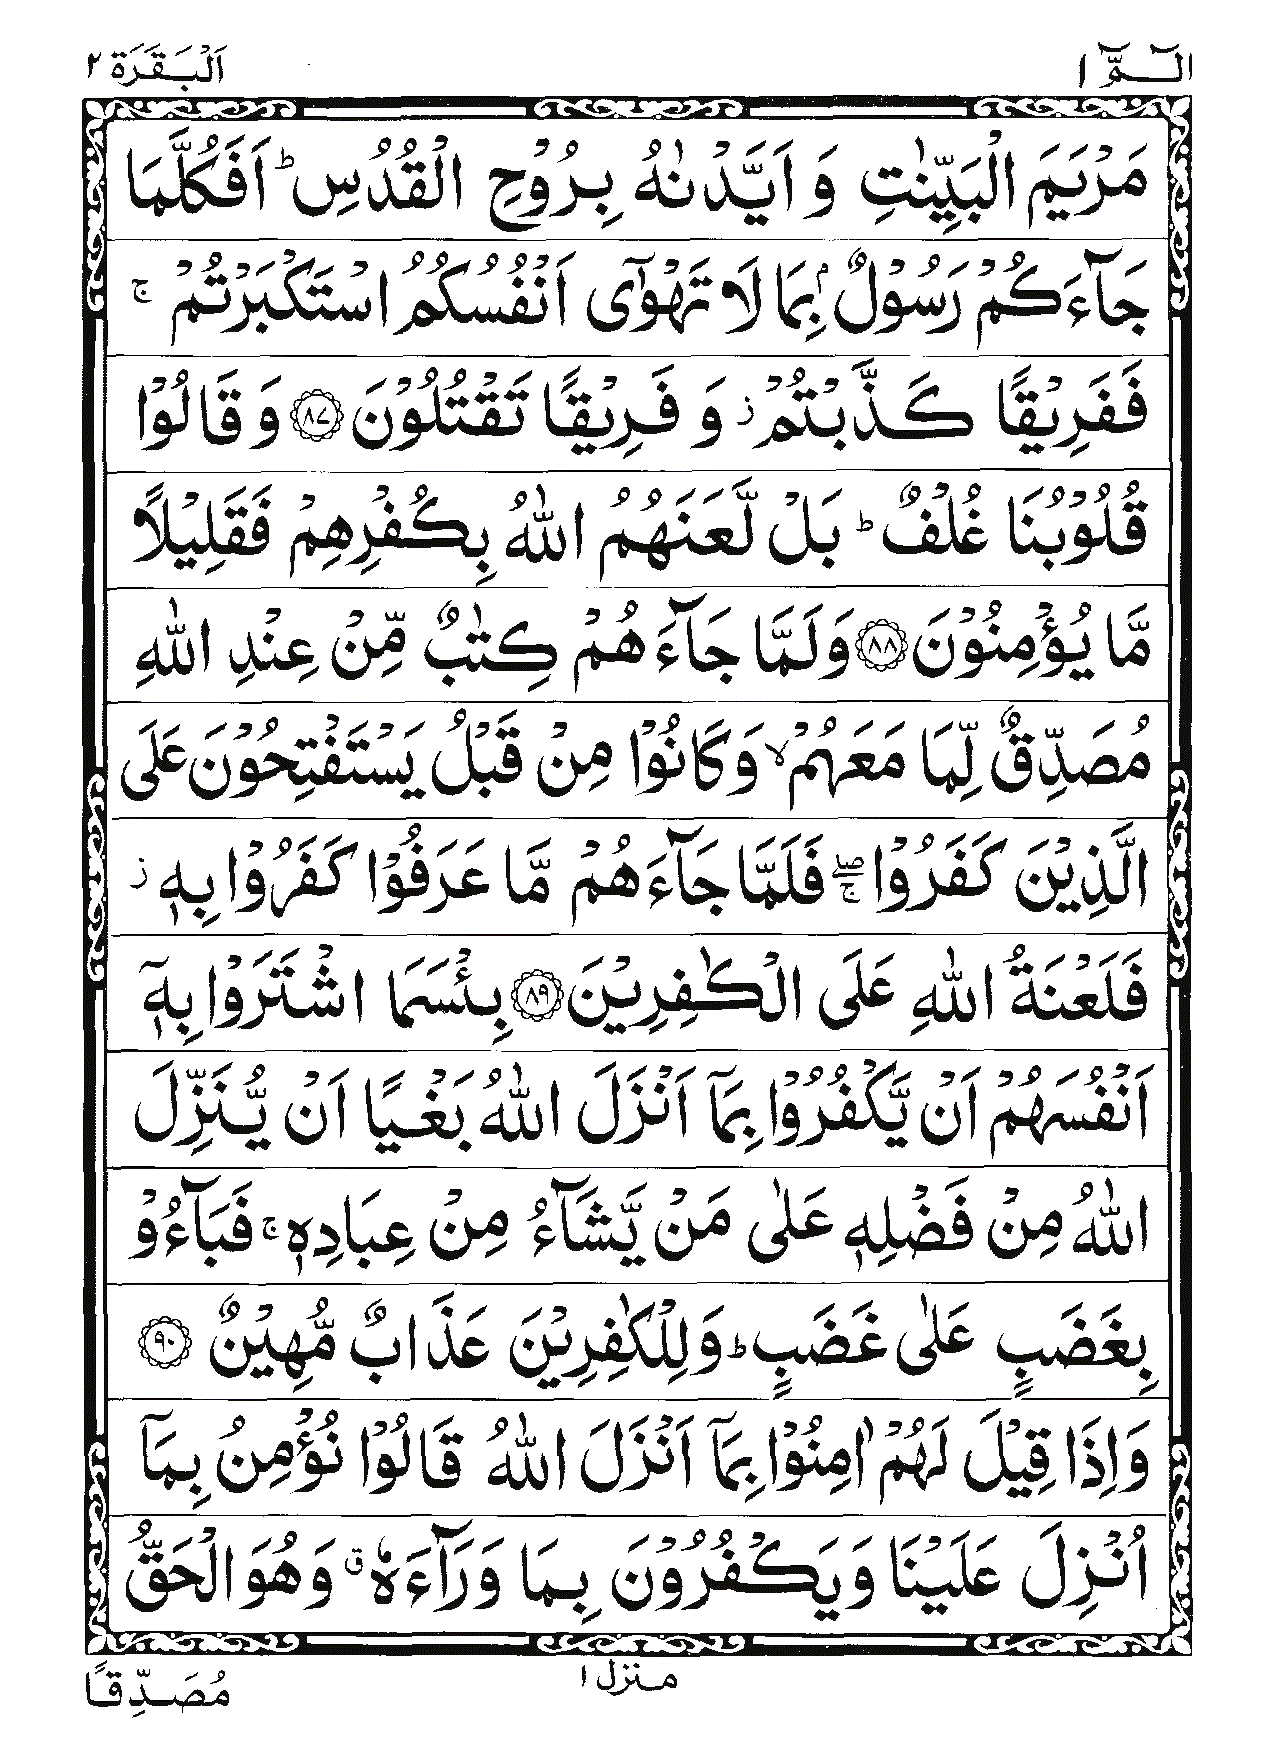 الٓمّٓ ١
اَلْبَقَرَة ٢
مَرْيَمَ الْبَيِّنٰتِ وَ اَيَّدْنٰهُ بِرُوْحِ الْقُدُسِ ؕ اَفَكُلَّمَا
جَآءَكُمْ رَسُوْلٌۢ بِمَا لَا تَهْوٰٓى اَنْفُسُكُمُ اسْتَكْبَرْتُمْ ۚ
فَفَرِيْقًا كَذَّبْتُمْ ؗ وَ فَرِيْقًا تَقْتُلُوْنَ ﴿٨٧﴾ وَ قَالُوْا
قُلُوْبُنَا غُلْفٌ ؕ بَلْ لَّعَنَهُمُ اللّٰهُ بِكُفْرِهِمْ فَقَلِيْلًا
مَّا يُؤْمِنُوْنَ ﴿٨٨﴾ وَلَمَّا جَآءَهُمْ كِتٰبٌ مِّنْ عِنْدِ اللّٰهِ
مُصَدِّقٌ لِّمَا مَعَهُمْ ۙ وَكَانُوْا مِنْ قَبْلُ يَسْتَفْتِحُوْنَ عَلَى
الَّذِيْنَ كَفَرُوْا ۖۚ فَلَمَّا جَآءَهُمْ مَّا عَرَفُوْا كَفَرُوْا بِهٖ ؗ
فَلَعْنَةُ اللّٰهِ عَلَى الْكٰفِرِيْنَ ﴿٨٩﴾ بِئْسَمَا اشْتَرَوْا بِهٖٓ
اَنْفُسَهُمْ اَنْ يَّكْفُرُوْا بِمَآ اَنْزَلَ اللّٰهُ بَغْيًا اَنْ يُّنَزِّلَ
اللّٰهُ مِنْ فَضْلِهٖ عَلٰى مَنْ يَّشَآءُ مِنْ عِبَادِهٖ ۚ فَبَآءُوْ
بِغَضَبٍ عَلٰى غَضَبٍ ؕ وَلِلْكٰفِرِيْنَ عَذَابٌ مُّهِيْنٌ ﴿٩٠﴾
وَاِذَا قِيْلَ لَهُمْ اٰمِنُوْا بِمَآ اَنْزَلَ اللّٰهُ قَالُوْا نُؤْمِنُ بِمَآ
اُنْزِلَ عَلَيْنَا وَيَكْفُرُوْنَ بِمَا وَرَآءَهٗ ۗ وَهُوَ الْحَقُّ
منزل ١
مُصَدِّقًا